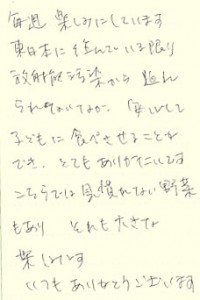 毎週 楽しみにしています
東日本に住んでいる限り
放射能汚染から 逃れ
られないですが、安心して
子どもに食べさせることが
でき、とてもありがたいです
こちらでは見慣れない野菜
もあり それも大きな
楽しみです
いつもありがとうございます